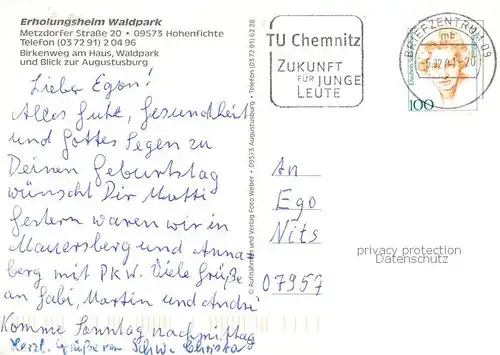 Erholungsheim Waldpark
Metzdorfer Straße 20 • 09573 Hohenfichte
Telefon (03 72 91) 2 04 96
Birkenweg am Haus, Waldpark
und Blick zur Augustusburg
Lieber Egon!
Alles Gute, Gesundheit
und Gottes Segen zu
Deinem Geburtstag
wünscht Dir Mutti
Gestern waren wir in
Mauersberg und Anna-
berg mit PKW. Viele Grüße
an Gabi, Martin und André
Komme Sonntag nachmittag
Herzl. Grüße von Schw. Christa
© Aufnahme und Verlag Foto Weber • 09573 Augustusburg • Telefon (03 72 91) 62 28
TU Chemnitz
ZUKUNFT
FÜR JUNGE
LEUTE
BRIEFZENTRUM 09
mb
100
An
Ego
Nits
07957
privacy protection
Datenschutz